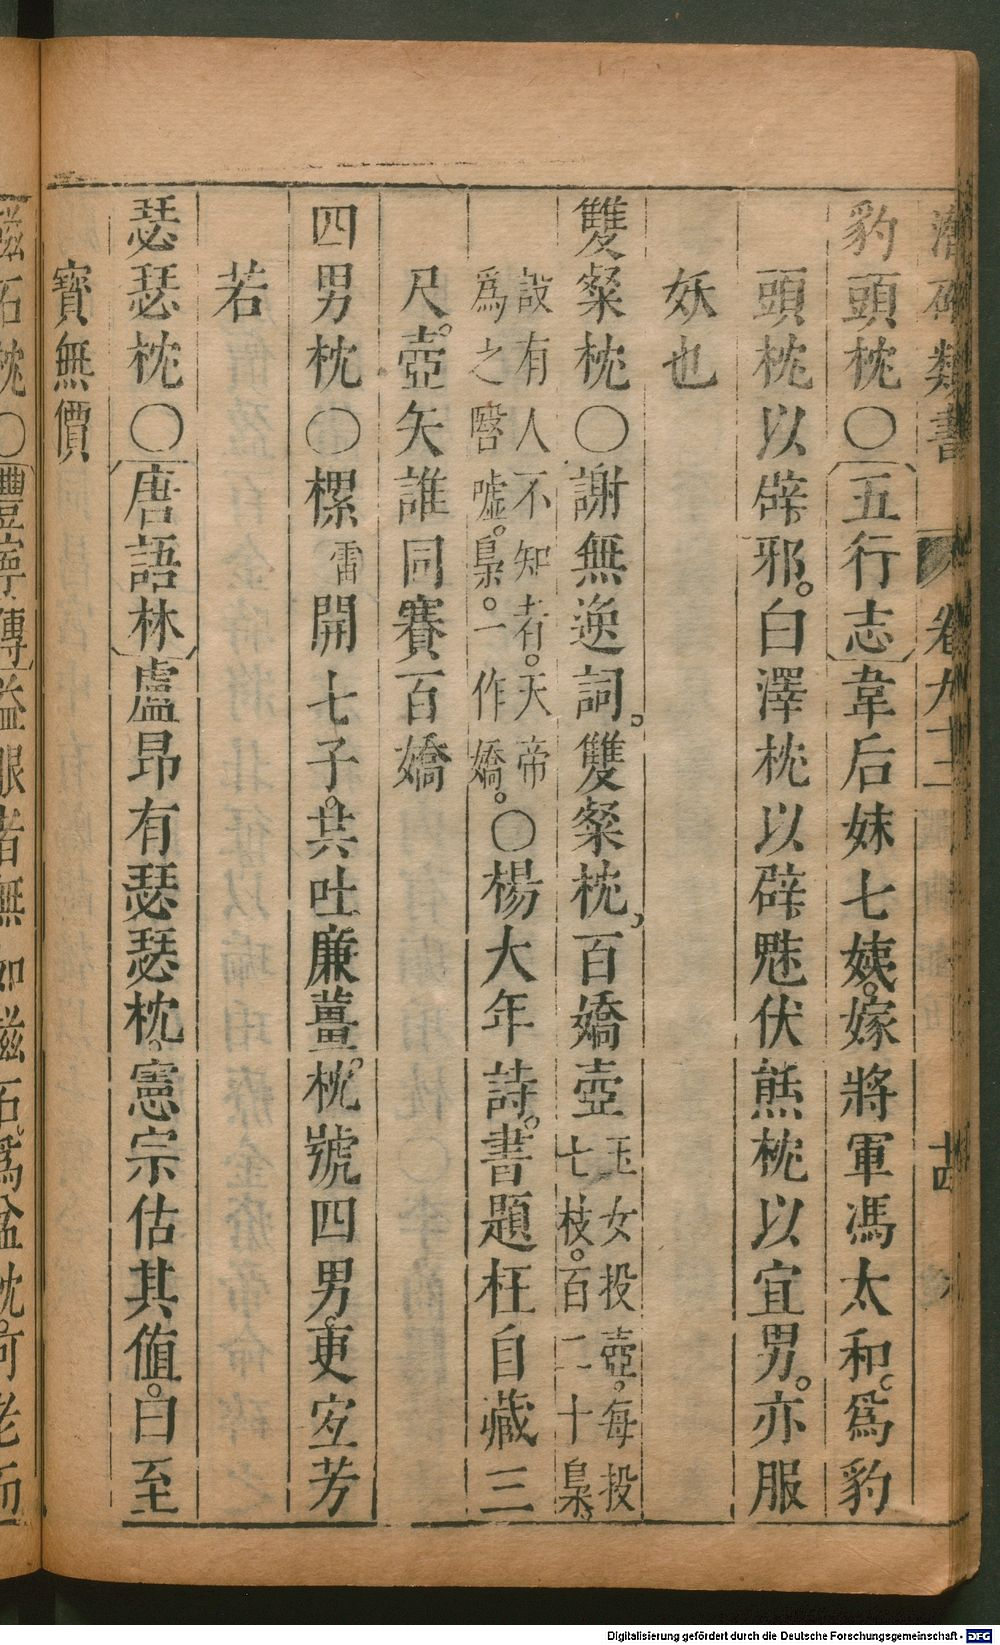 潛確類書 卷九十三 十四
豹頭枕〇五行志韋后妹七姨。嫁將軍馮太和。爲豹
頭枕以辟邪。白澤枕以辟魅伏熊枕以宜男。亦服
妖也
雙粲枕〇謝無逸詞。雙粲枕。百嬌壺玉女投壺。每投七枝。百二十梟。
設有人不知者。天帝爲之䁂噓。梟。一作嬌。〇楊大年詩。書題枉自藏三
尺。壺矢誰同賽百嬌
四男枕〇樏雷開七子。共吐廉薑。枕號四男。更定芳
若
瑟瑟枕〇唐語林盧昂有瑟瑟枕。憲宗估其值。曰至
寶無價
磁石枕〇豐寧傳益眼者無如磁石。爲盆枕。可老而
Digitalisierung gefördert durch die Deutsche Forschungsgemeinschaft - DFG